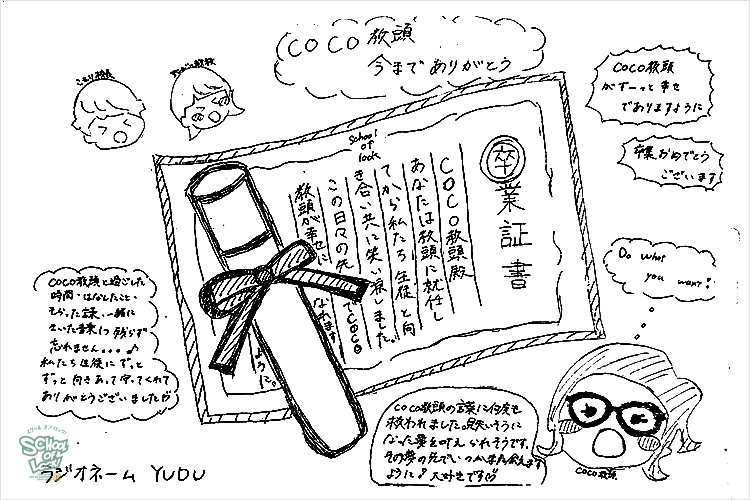 COCO教頭
今までありがとう
こもり校長
COCO教頭
がずーっと幸せ
でありますように
卒業おめでとう
ございます
Do what
you want!
School
of
lock
卒業証書
COCO教頭殿
あなたは教頭に就任し
てから私たち生徒と向
き合い共に笑い涙しました。
この日々の先
でCOCO
教頭が幸せに
なれます
ように。
COCO教頭と過ごした
時間・はなしたこと・
もらった言葉・一緒に
忘れません
私たち生徒にずっと
ずっと向きあって守ってくれて
ありがとうございました
COCO教頭の言葉に何度も
救われました。失いそうに
なった夢を叶えられそうです。
その夢の先でいつかまた会えます
ように! 大好きです
COCO教頭
スクールオブロック!
SCHOOL
OF
LOCK!
ラジオネーム YUDU